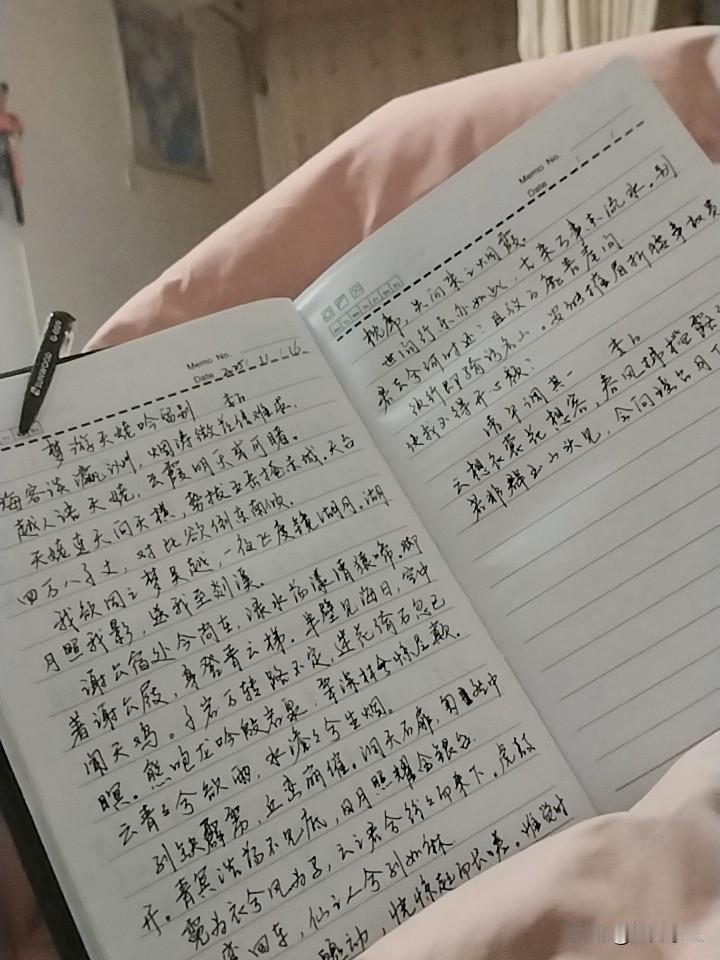 SUNWOOD
Memo No.
Date 2025.1.16
梦游天姥吟留别 李白
海客谈瀛洲，烟涛微茫信难求。
越人语天姥，云霞明灭或可睹。
天姥连天向天横，势拔五岳掩赤城。天台
四万八千丈，对此欲倒东南倾。
我欲因之梦吴越，一夜飞度镜湖月。湖
月照我影，送我至剡溪。
谢公宿处今尚在，渌水荡漾清猿啼。脚
着谢公屐，身登青云梯。半壁见海日，空中
闻天鸡。千岩万转路不定，迷花倚石忽已
暝。熊咆龙吟殷岩泉，栗深林兮惊层巅。
云青青兮欲雨，水澹澹兮生烟。
列缺霹雳，丘峦崩摧。洞天石扉，訇然中
开。青冥浩荡不见底，日月照耀金银台
霓为衣兮风为马，云之君兮纷纷而来下。虎鼓
回车，仙之人兮列如麻
动，恍惊起而长嗟。惟觉时
Memo No.
Date / /
枕席，失向来之烟霞。
世间行乐亦如此，古来万事东流水。别
君去兮何时还？且放白鹿青崖间
须行即骑访名山。安能摧眉折腰事权贵
使我不得开心颜？
清平调其一 李白
云想衣裳花想容，春风拂槛露
若非群玉山头见，会向瑶台月下